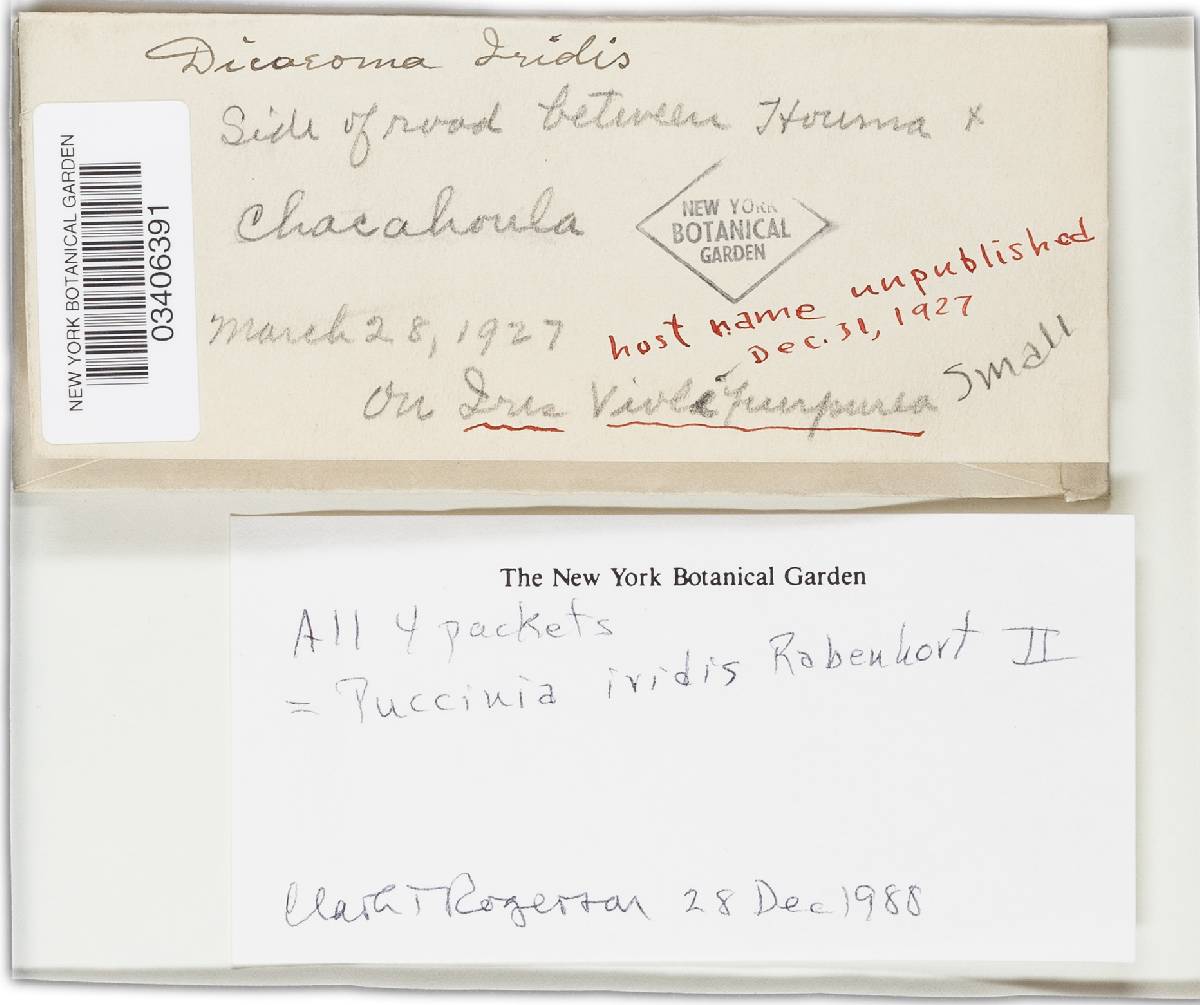 Dicaeoma Iridis
Side of road between Houma &
Chacahoula
NEW YORK
BOTANICAL
GARDEN
March 28, 1927
host name unpublished
Dec. 31, 1927
On Iris Violipurpurea Small
NEW YORK BOTANICAL GARDEN
03406391
The New York Botanical Garden
All 4 packets
= Puccinia iridis Rabenhort II
Clark T Rogerson 28 Dec 1988